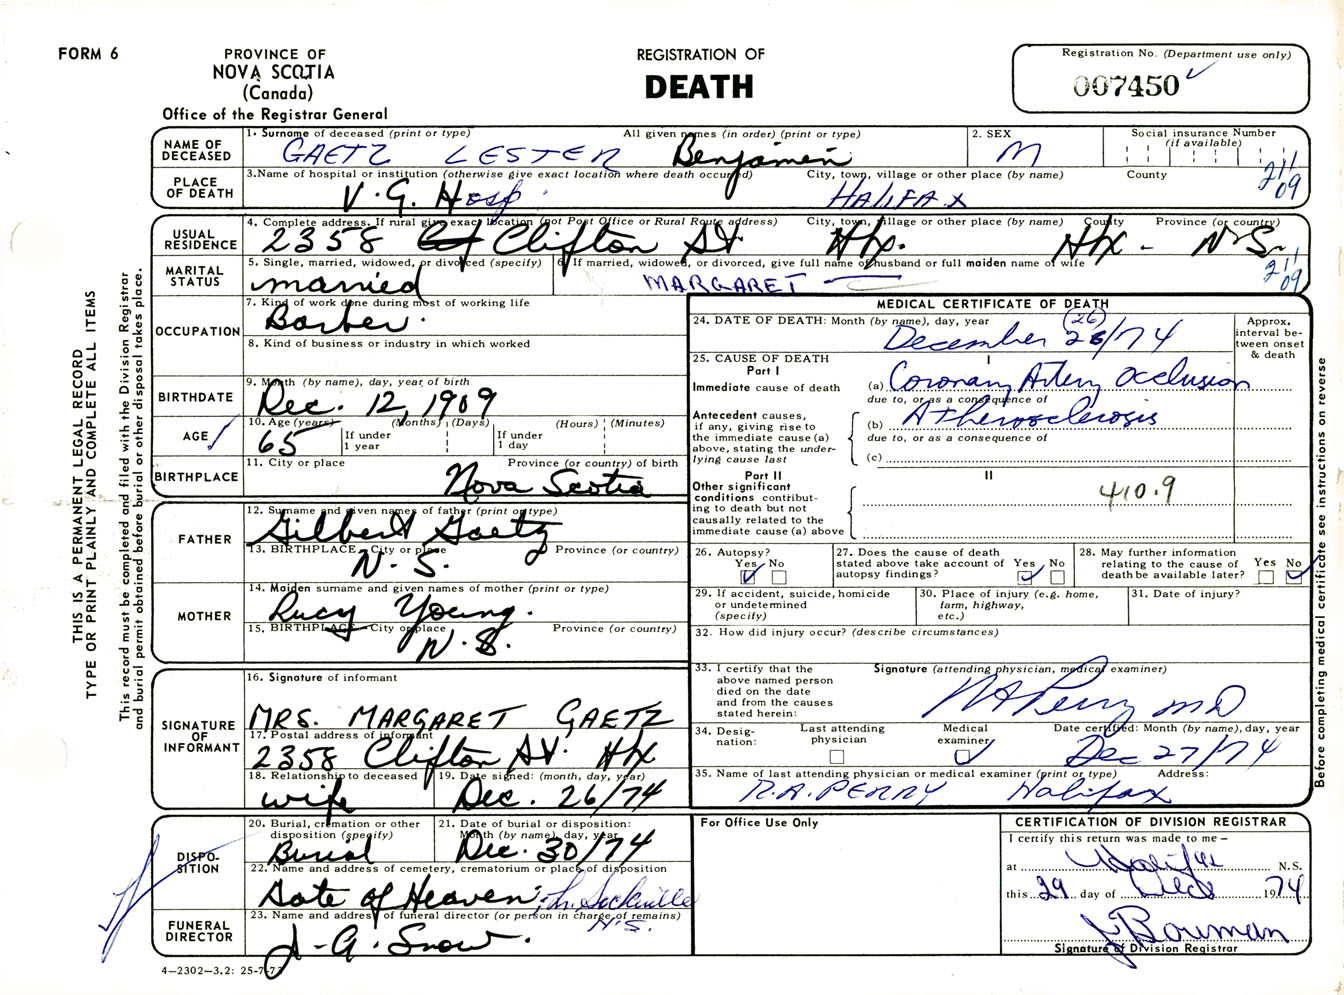 FORM 6
PROVINCE OF
NOVA SCOTIA
(Canada)
Office of the Registrar General
REGISTRATION OF
DEATH
Registration No. (Department use only)
007450
THIS IS A PERMANENT LEGAL RECORD
TYPE OR PRINT PLAINLY AND COMPLETE ALL ITEMS
This record must be completed and filed with the Division Registrar
and burial permit obtained before burial or other disposal takes place.
NAME OF
DECEASED
1. Surname of deceased (print or type) All given names (in order) (print or type)
GAETZ LESTER Benjamin
2. SEX
M
Social insurance Number
(if available)
PLACE
OF DEATH
3. Name of hospital or institution (otherwise give exact location where death occurred) City, town, village or other place (by name) County
V.G. Hosp. HALIFAX
211
09
USUAL
RESIDENCE
4. Complete address. If rural give exact location (not Post Office or Rural Route address) City, town, village or other place (by name) County Province (or country)
2358 Clifton St. Hfx. Hfx - N.S.
211
09
MARITAL
STATUS
5. Single, married, widowed, or divorced (specify)
married
6. If married, widowed, or divorced, give full name of husband or full maiden name of wife
MARGARET
OCCUPATION
7. Kind of work done during most of working life
Barber.
8. Kind of business or industry in which worked
BIRTHDATE
9. Month (by name), day, year of birth
Dec. 12, 1909
AGE
10. Age (years) (Months) (Days) (Hours) (Minutes)
65 If under
1 year
If under
1 day
BIRTHPLACE
11. City or place Province (or country) of birth
Nova Scotia
FATHER
12. Surname and given names of father (print or type)
Gilbert Gaetz
13. BIRTHPLACE—City or place Province (or country)
N.S.
MOTHER
14. Maiden surname and given names of mother (print or type)
Lucy Young.
15. BIRTHPLACE—City or place Province (or country)
N.S.
SIGNATURE
OF
INFORMANT
16. Signature of informant
MRS. MARGARET GAETZ
17. Postal address of informant
2358 Clifton St. Hfx
18. Relationship to deceased
wife
19. Date signed: (month, day, year)
Dec. 26/74
DISPO-
SITION
20. Burial, cremation or other
disposition (specify)
Burial
21. Date of burial or disposition:
Month (by name), day, year
Dec. 30/74
22. Name and address of cemetery, crematorium or place of disposition
Gate of Heaven, Lr. Sackville
N.S.
FUNERAL
DIRECTOR
23. Name and address of funeral director (or person in charge of remains)
J.A. Snow.
4—2302—3.2: 25-7-73
MEDICAL CERTIFICATE OF DEATH
24. DATE OF DEATH: Month (by name), day, year
(26)
December 26/74
Approx.
interval be-
tween onset
& death
25. CAUSE OF DEATH
Part I
I
Immediate cause of death
(a) Coronary Artery Occlusion
due to, or as a consequence of
Antecedent causes,
if any, giving rise to
the immediate cause (a)
above, stating the under-
lying cause last
(b) Atherosclerosis
due to, or as a consequence of
(c)
Part II
II
Other significant
conditions contribut-
ing to death but not
causally related to the
immediate cause (a) above
410.9
26. Autopsy?
Yes No
27. Does the cause of death
stated above take account of
autopsy findings?
Yes No
28. May further information
relating to the cause of
death be available later?
Yes No
29. If accident, suicide, homicide
or undetermined
(specify)
30. Place of injury (e.g. home,
farm, highway,
etc.)
31. Date of injury?
32. How did injury occur? (describe circumstances)
33. I certify that the
above named person
died on the date
and from the causes
stated herein:
Signature (attending physician, medical examiner)
RA Perry MD
34. Desig-
nation:
Last attending
physician
Medical
examiner
Date certified: Month (by name), day, year
Dec 27/74
35. Name of last attending physician or medical examiner (print or type) Address:
R.A. PERRY Halifax
For Office Use Only
CERTIFICATION OF DIVISION REGISTRAR
I certify this return was made to me—
at Halifax N.S.
this 29 day of Dec 1974
J Bowman
Signature of Division Registrar
Before completing medical certificate see instructions on reverse